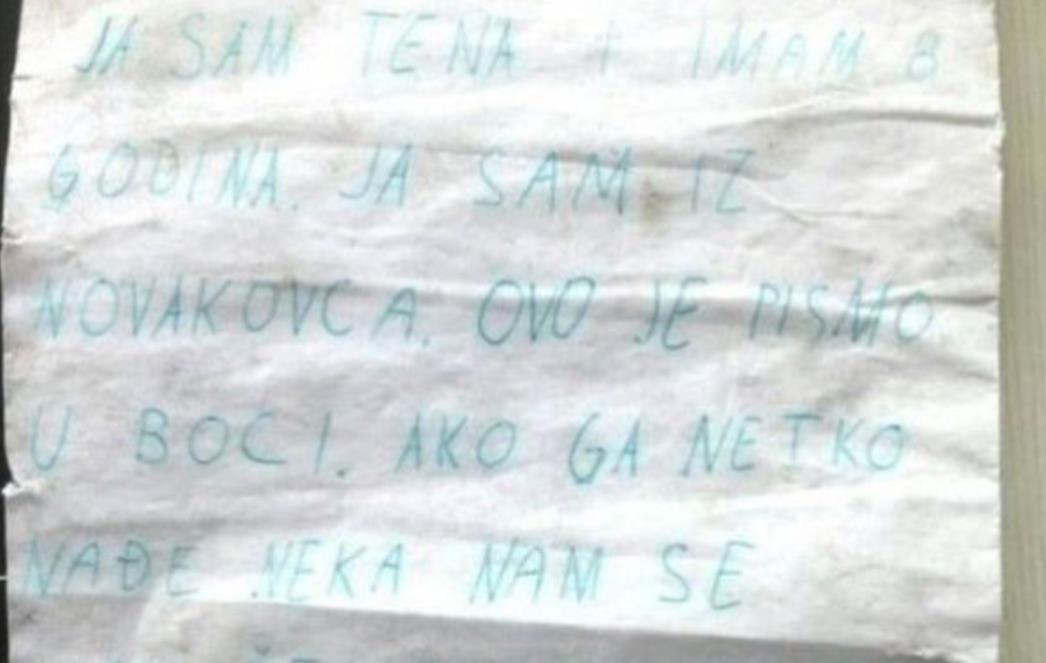 JA SAM TENA I IMAM 8
GODINA. JA SAM IZ
NOVAKOVCA. OVO JE PISMO
U BOCI. AKO GA NETKO
NAĐE NEKA NAM SE